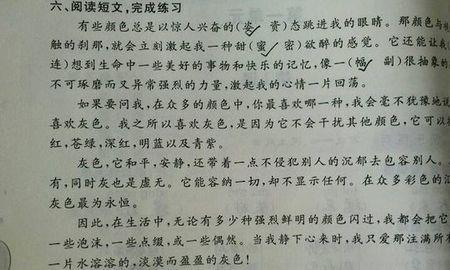 六、阅读短文,完成练习
有些颜色总是以惊人兴奋的(姿 资)态跳进我的眼睛。那颜色与
触的刹那,就会立刻激起我一种甜(蜜 密)欲醉的感觉。它还能让我
连)想到生命中一些美好的事物和快乐的记忆,像一(幅 副)很抽象的
不可琢磨而又异常强烈的力量,激起我的心情一片回荡。
如果要问我,在众多的颜色中,你最喜欢哪一种,我会毫不犹豫地说
喜欢灰色。我之所以喜欢灰色,是因为它不会干扰其他颜色,它可以
红,苍绿,深红,明蓝以及青紫。
灰色,它和平,安静,还带着一点不侵犯别人的沉郁去包容别人。
有,同时灰也是虚无。它能容纳一切,却不显示任何。在众多彩色的
灰色最为永恒。
因此,在生活中,无论有多少种强烈鲜明的颜色闪过,我都会把它
一些泡沫,一些点缀,或一些偶然。当我静下心来时,我只爱那注满所
一片水溶溶的,淡漠而盈盈的灰色!